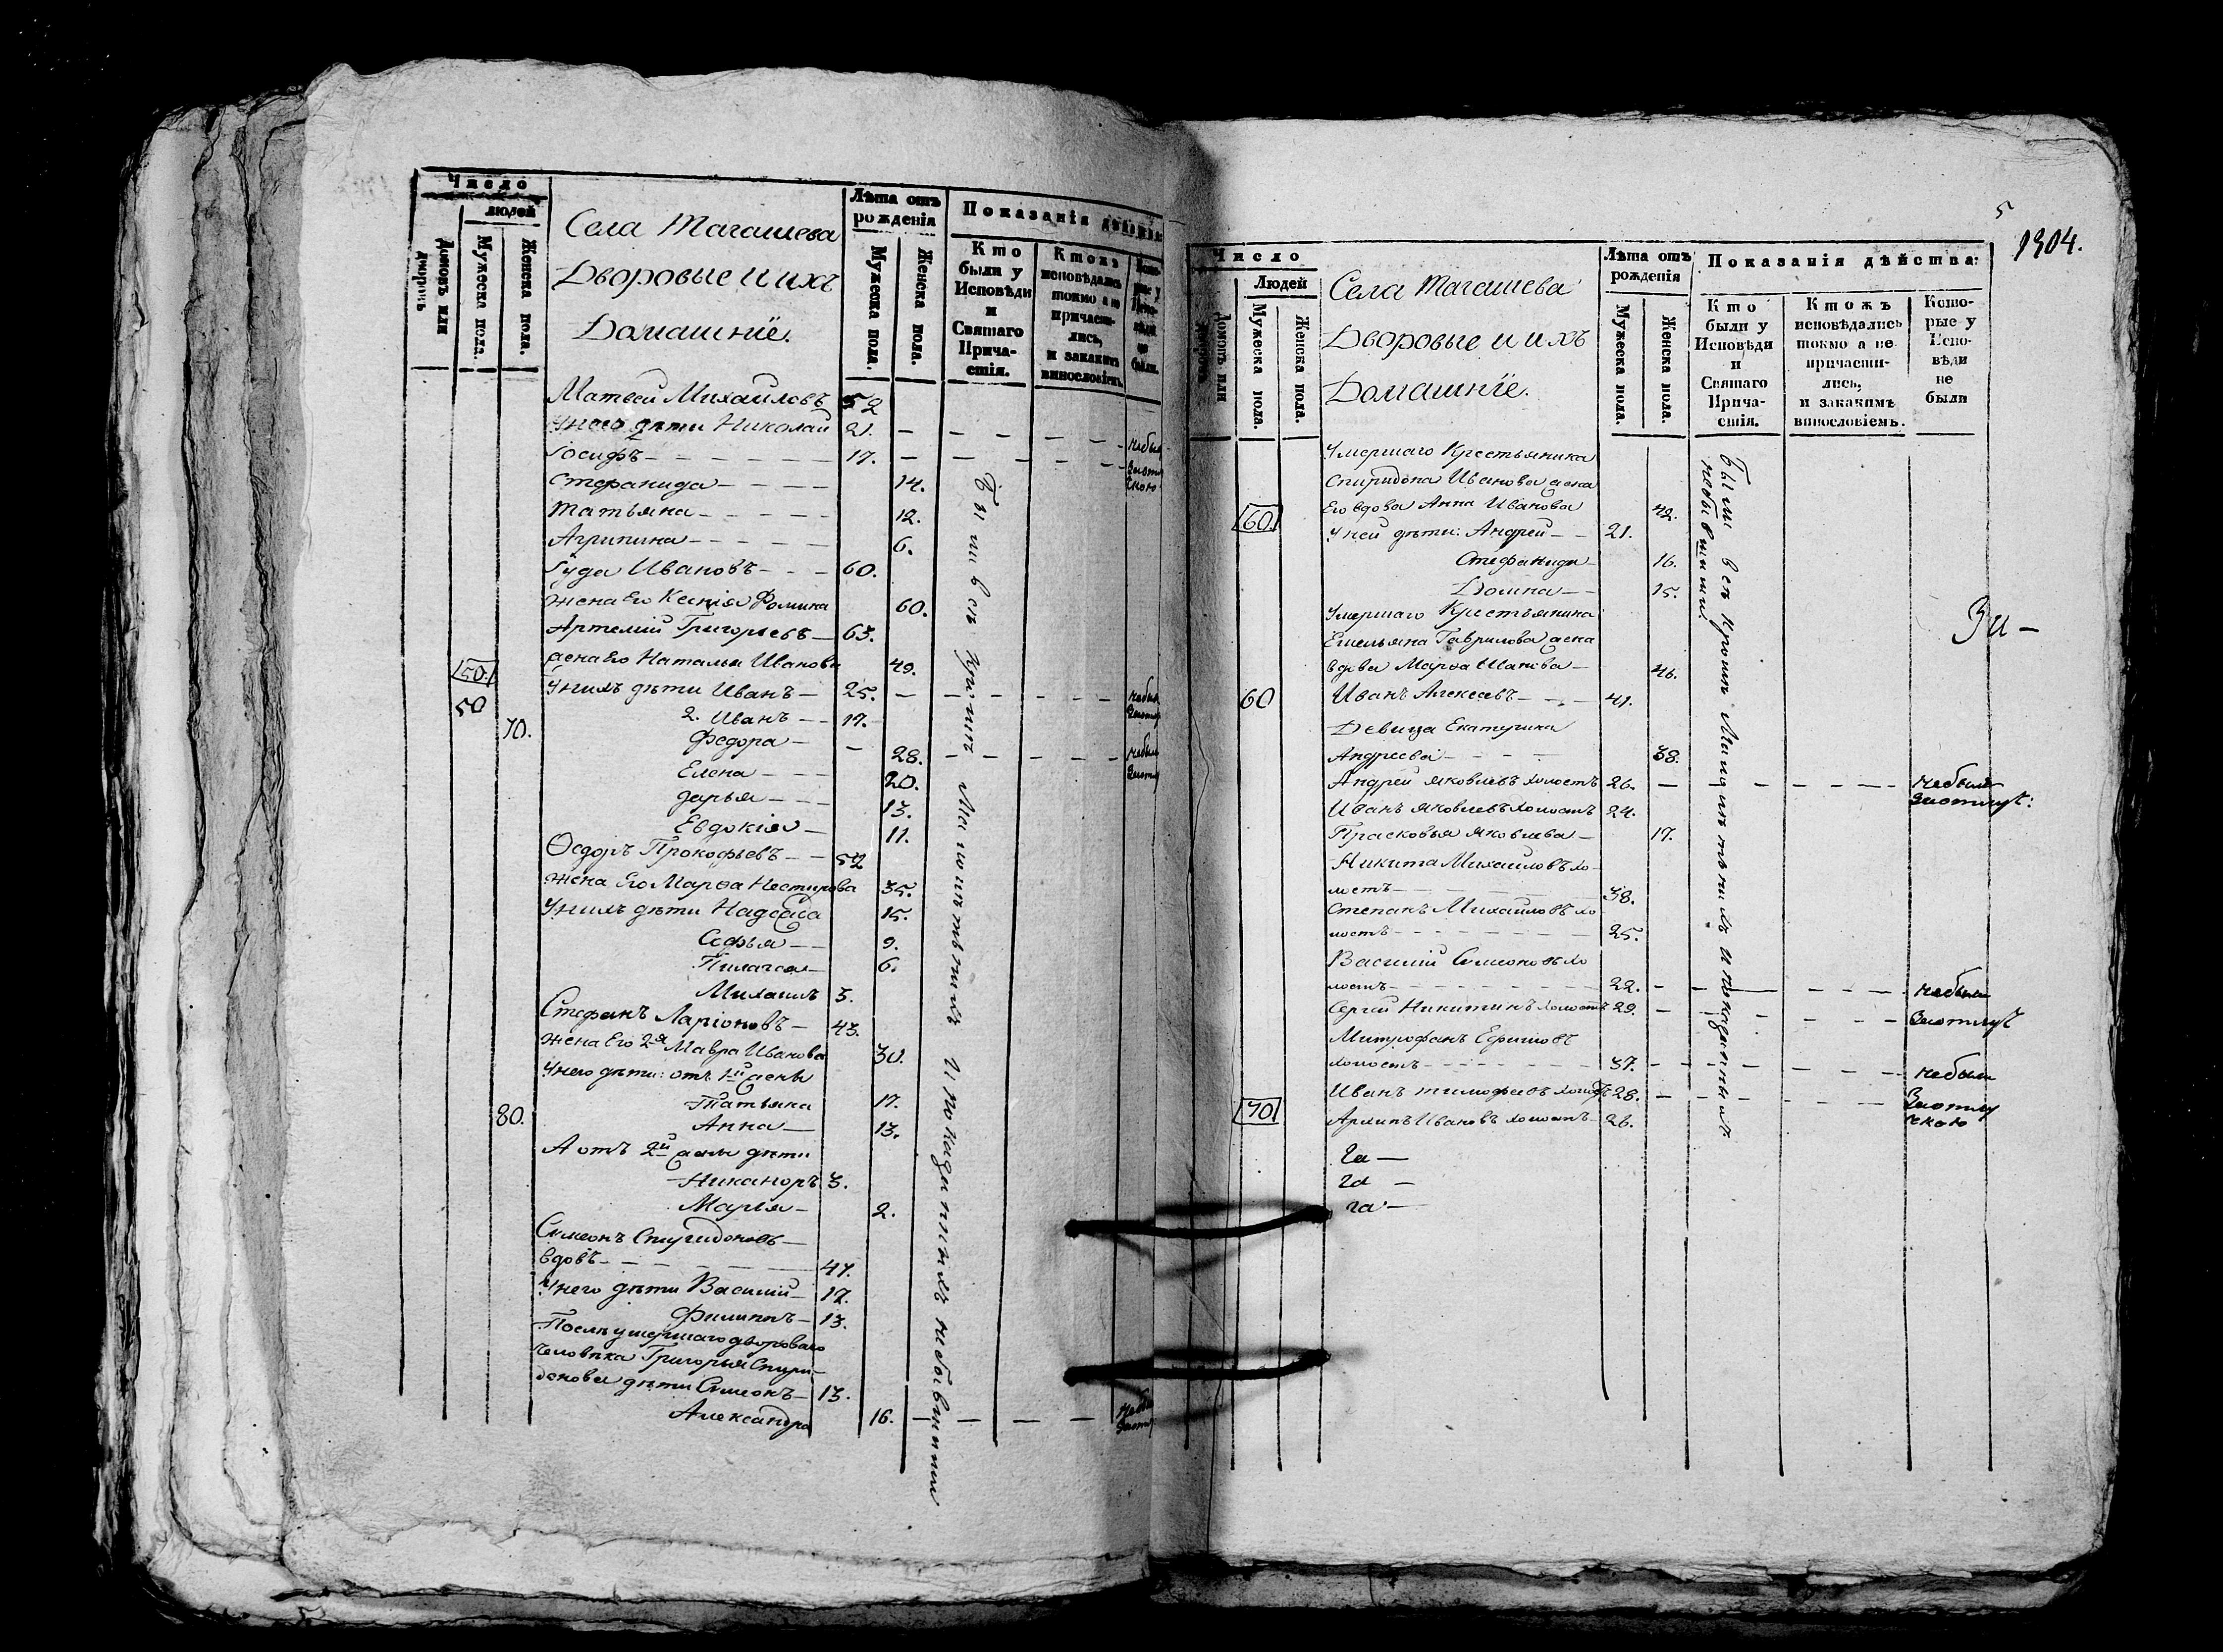 Число
людей
Домовъ или дворовъ
Мужеска пола.
Женска пола.
Села Тагашева
Дворовые и ихъ
Домашнїе.
Лѣта отъ
рожденія
Мужеска пола.
Женска пола.
Показанія дѣйства
Кто
были у
Исповѣди
и
Святаго
Прича-
стія.
Ктожъ
исповѣдались
токмо а не
причасти-
лись,
и закакимъ
винословіемъ
не
были.
Матвей Михайловъ 52
У него дѣти Николай 21. — — — — — небыли
Іосифъ — — — 17. — — — — —
Стефанида — — — 14.
Татьяна — — — 12.
Агрипина — — — 6.
Іуда Ивановъ — — 60.
жена Его Ксенія Фомина 60.
Артемий Григорьевъ — 63.
жена Его Наталья Иванова 49.
50.
У нихъ дѣти Иванъ — 25. — — — —
50
2. Иванъ — — 17.
70.
Федора — — 28. — — — —
Елена — — 20.
Дарья — — 13.
Евдокія — 11.
Ѳедоръ Прокофьевъ — — 52
жена Его Марѳа Нестирова 35.
У нихъ дѣти Надежда 15.
Софья — — 9.
Пилагея — 6.
Михаилъ 3.
Стефанъ Ларіоновъ — 43.
жена Его 2я Мавра Иванова 30.
У него дѣти: отъ 1й жены
Татьяна 17.
80.
Анна — 13.
А отъ 2й жены дѣти
Никаноръ 3.
Марія — 2.
Симеонъ Спиридоновъ —
вдовъ — — — 47.
У него дѣти Василій — 17.
Филиппъ — 13.
Послѣ умершаго двороваго
человѣка Григорья Спири-
донова дѣти Симеонъ — 13.
Александра 16. — — — —
Были всѣ кромѣ Малолѣтнихъ и показанныхъ небывшими
5
1304.
Число
Людей
Домовъ или дворовъ
Мужеска пола.
Женска пола.
Села Тагашева
Дворовые и ихъ
Домашнїе.
Лѣта отъ
рожденія
Мужеска пола.
Женска пола.
Показанія дѣйства:
Кто
были у
Исповѣди
и
Святаго
Прича-
стія.
Ктожъ
исповѣдались
токмо а не
причасти-
лись,
и закакимъ
винословіемъ.
Кото-
рые у
Испо-
вѣди
не
были
Умершаго Крестьянина
Спиридона Иванова жена
Его вдова Анна Иванова 42.
60.
У ней дѣти: Андрей — — 21.
Стефанида — 16.
Домна — — 15.
Умершаго Крестьянина
Емельяна Гаврилова жена
вдова Марѳа Иванова — 46.
60
Иванъ Алексеевъ — — — 41.
Девица Екатерина
Андреева — — — 38.
Андрей Яковлевъ холостъ 26. — — — — — небыли
Иванъ Яковлевъ холостъ 24.
Прасковья Яковлева — 17.
Никита Михаиловъ хо-
лостъ — — — 38.
Степанъ Михаиловъ хо
лостъ — — — 25.
Василий Симеоновъ хо
лостъ — — — 22. — — — — небыли
Сергей Никитинъ холостъ 29. — — — —
Митрофанъ Ефимовъ
холостъ — — — 37. — — — — небыли
Иванъ Тимофеевъ холостъ 28. — — — —
70.
Архипъ Ивановъ холостъ 26.
Были всѣ кромѣ Малолѣтнихъ и показанныхъ
небывшими